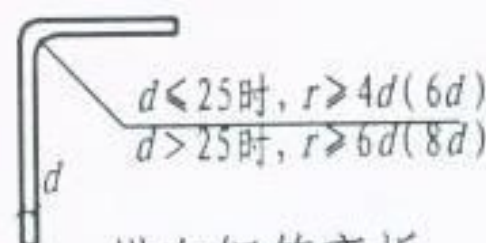 d≤25时, r≥4d(6d)
d>25时, r≥6d(8d)
d